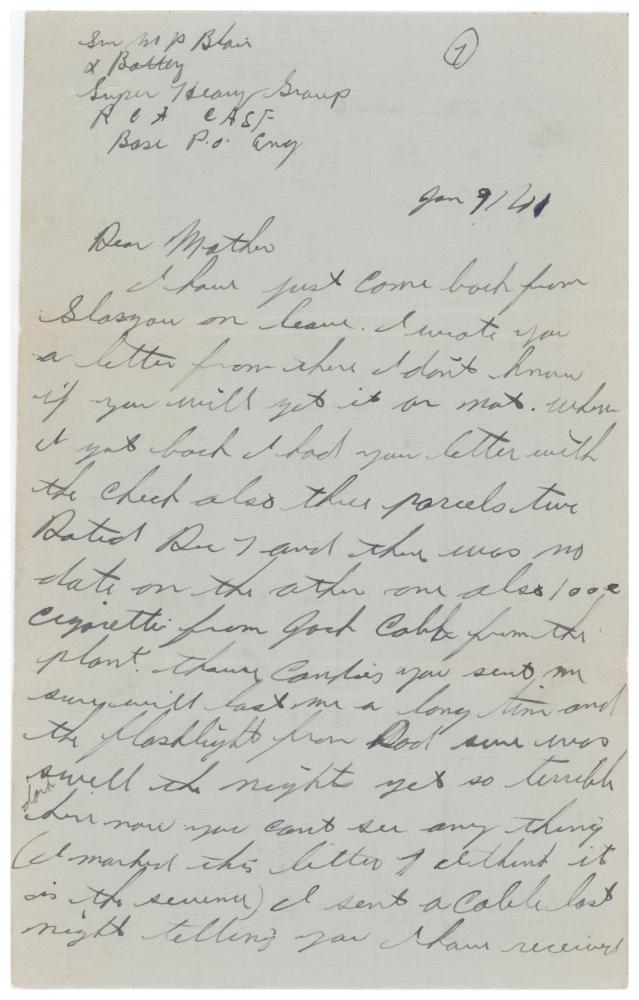 Gnr M P Blair
2 Battery
Super Heavy Group
R C A CASF
Base P.O. Eng
7
Jan 9/41
Dear Mother
I have just come back from
Glasgow on leave. I wrote you
a letter from there I don't know
if you will get it or not. When
I got back I had your letter with
the check also three parcels two
Dated Dec 7 and there was no
date on the other one also 1000
cigarette from Jack Cobb from the
plant. those Candies you sent me
sure will last me a long time and
the flashlight from Dad sure was
swell the nights get so terrible
dark
here now you cant see any thing
(I marked this letter 7 I think it
is the seventh) I sent a Cable last
night telling you I have received